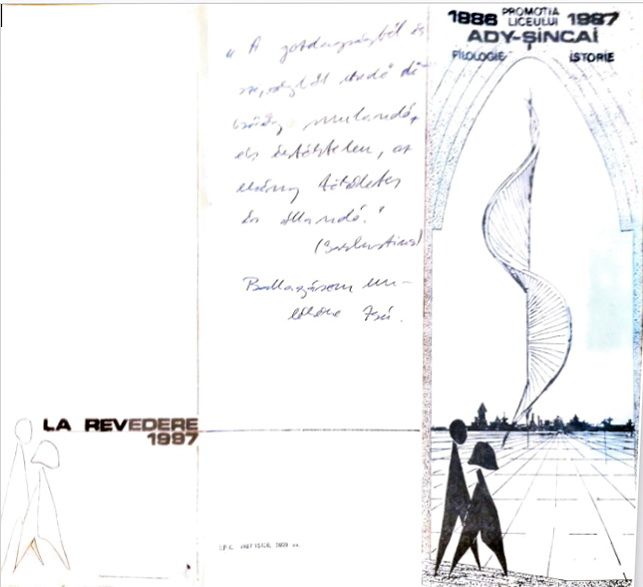 LA REVEDERE
1997
„ A gazdagságból és
szépségből eredő di-
csőség mulandó,
és értéktelen, az
erény tökéletes
és állandó.”
(Sallustius)
Ballagásom em-
lékére
1986 PROMOTIA LICEULUI 1987
ADY-ŞINCAI
FILOLOGIE ISTORIE